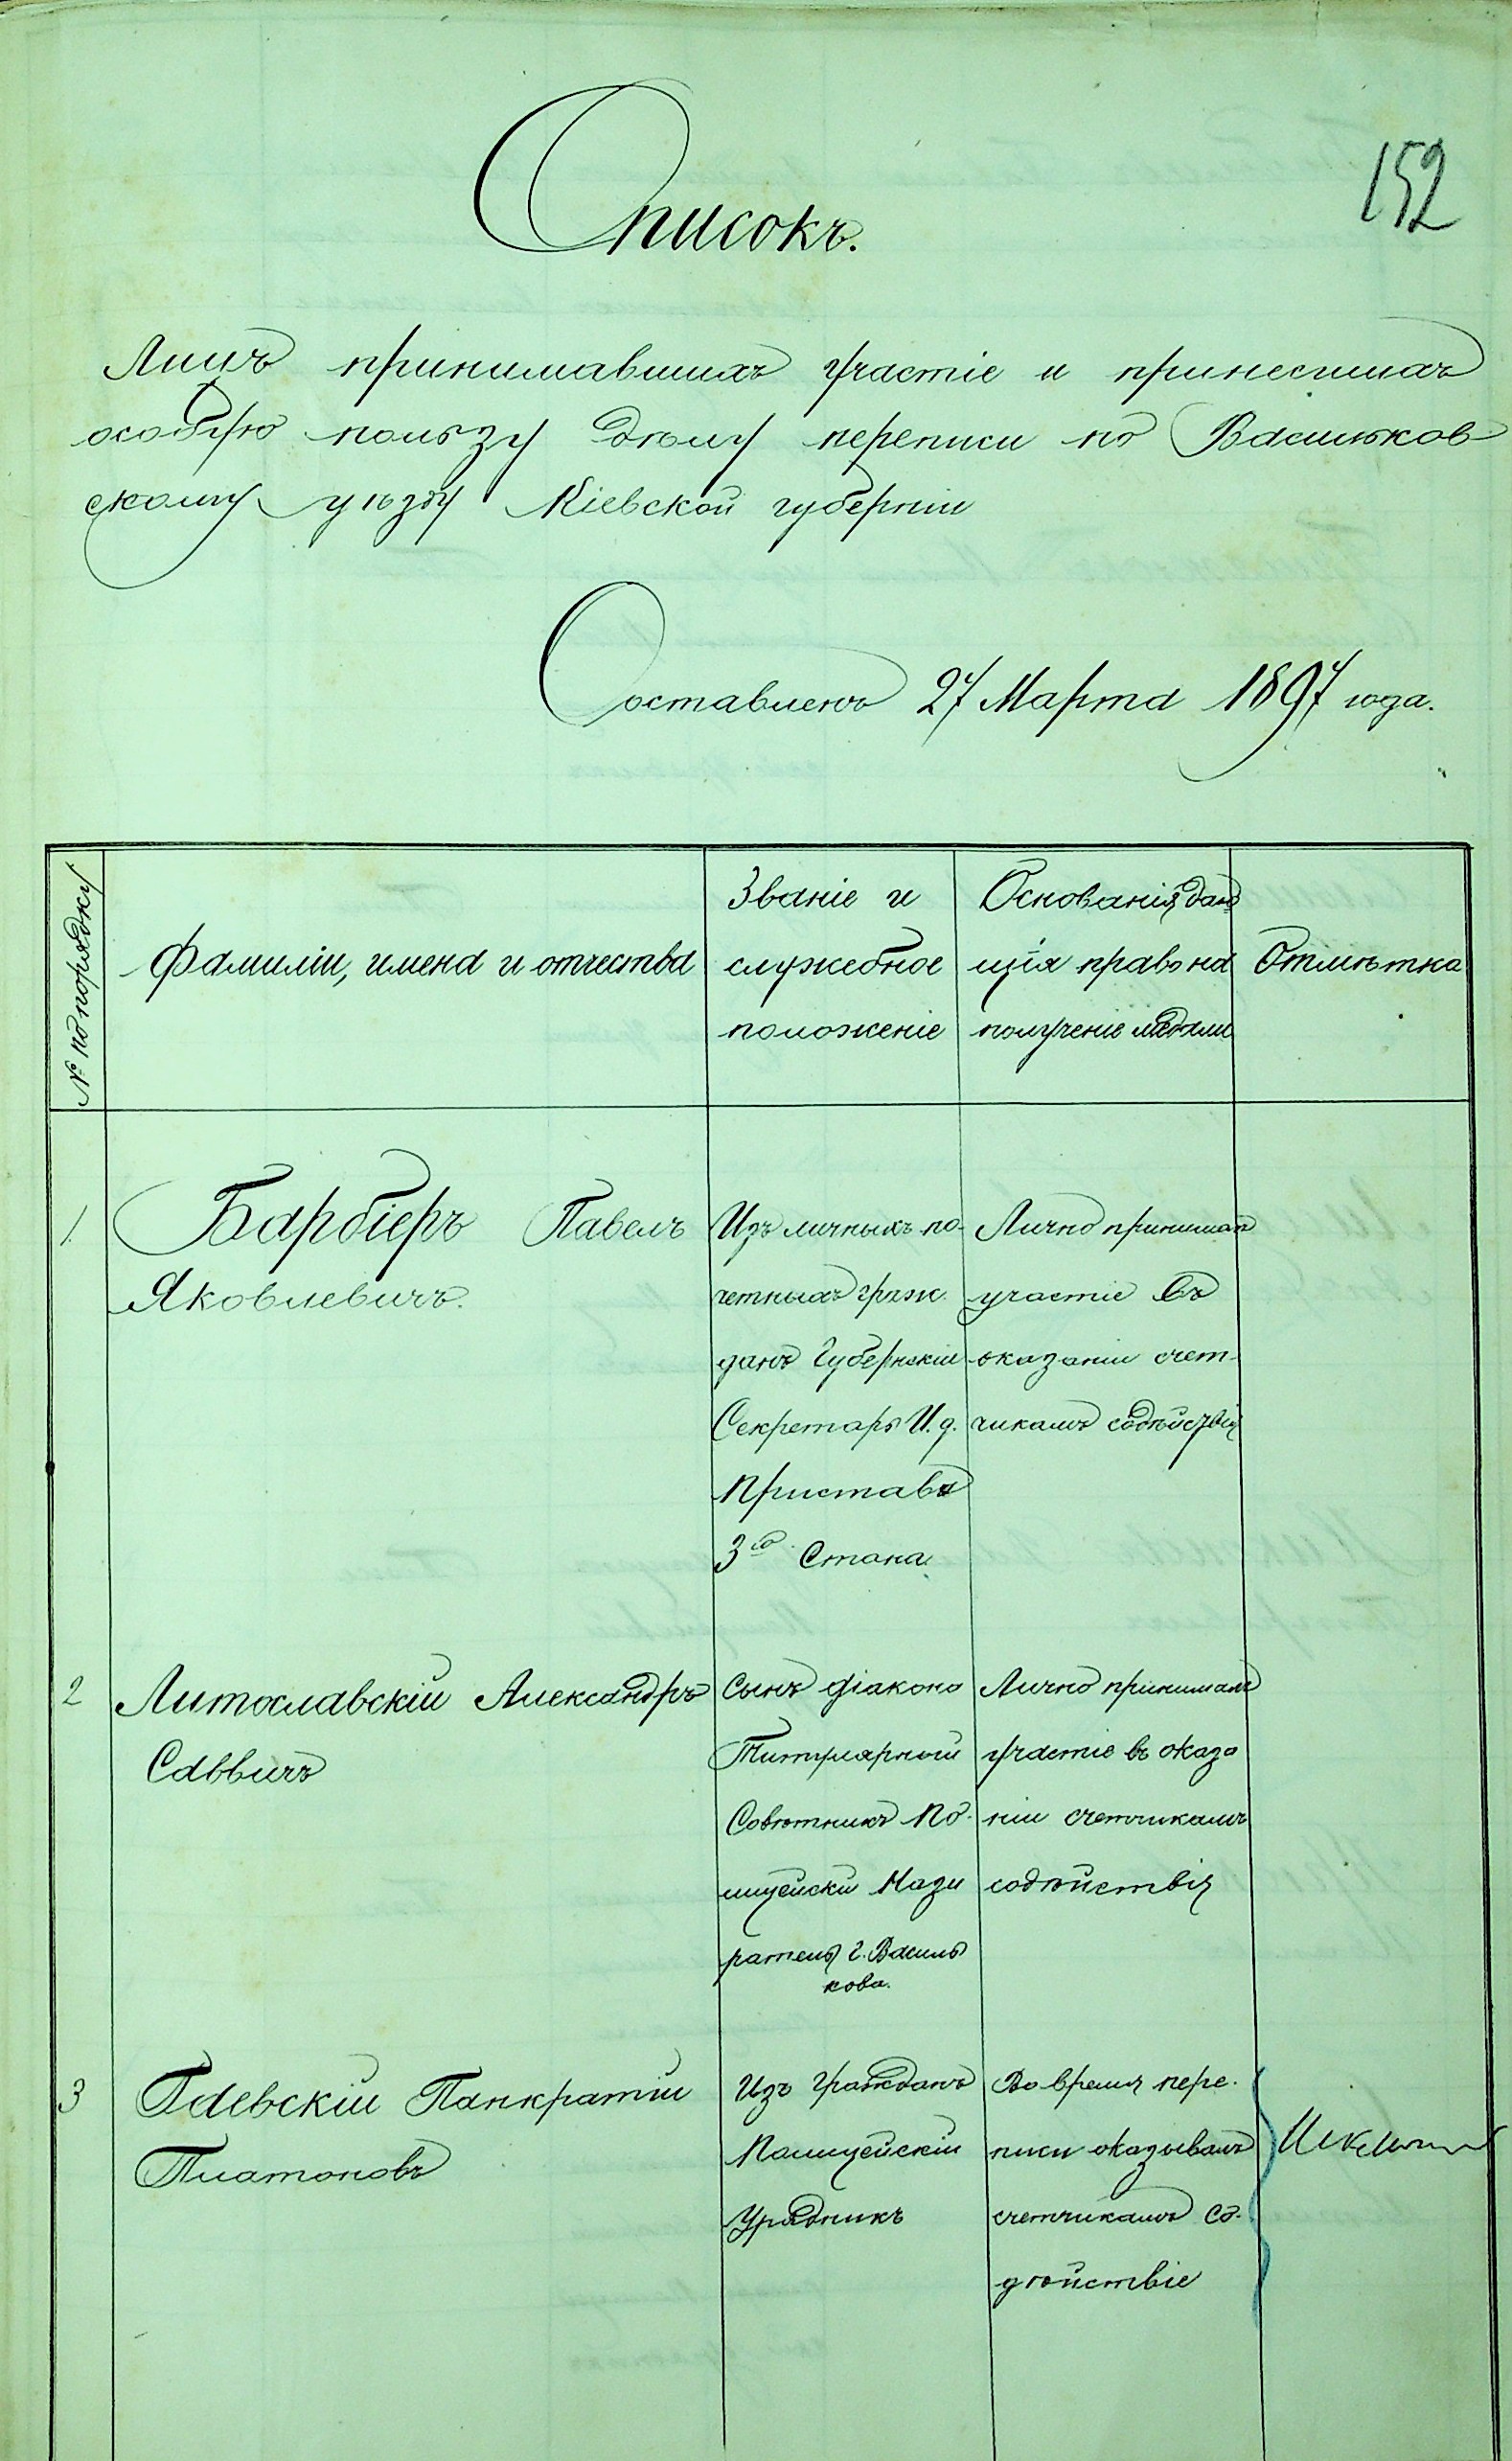 152
Списокъ.
Лицъ принимавшихъ участіе и принесшихъ
особую пользу дѣлу переписи по Васильков-
скому уѣзду Кіевской губерніи
Составленъ 27 Марта 1897 года.
№ по порядку
Фамиліи, имена и отчества
Званіе и
служебное
положеніе
Основанія, даю
щія право на
полученіе медали
Отмѣтка
1.
Барбіеръ Павелъ
Яковлевичъ.
Изъ личныхъ по-
четныхъ граж.
данъ Губернскій
Секретарь И. д.
Пристава
3го Стана.
Лично принималъ
участіе въ
оказаніи счет-
чикамъ содѣйствія
2
Литославскій Александръ
Саввичъ
Сынъ діакона
Титулярный
Совѣтникъ По-
лицейскій Надзи
ратель г. Василь
кова.
Лично принималъ
участіе въ оказа
ніи счетчикамъ
содѣйствія
3
Панкратій
Платоновъ
Изъ гражданъ
Полицейскій
Урядникъ
Во время пере-
писи оказывалъ
счетчикамъ со-
дѣйствіе